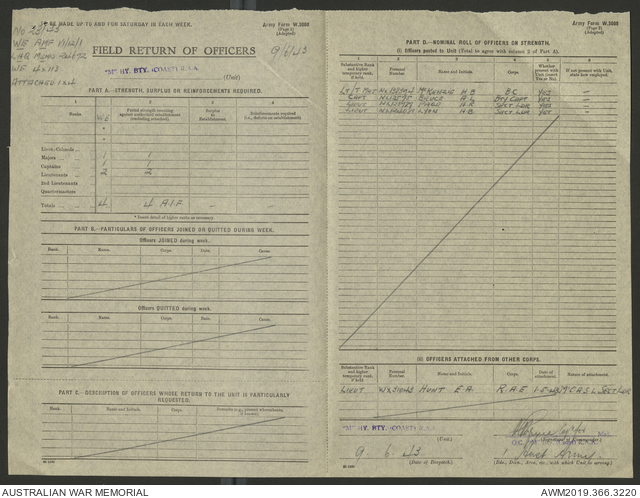 TO BE MADE UP TO AND FOR SATURDAY IN EACH WEEK.
Army Form W.3008
(Page 1)
(Adapted)
No 23/43
WE AMF
ATTACHED
FIELD RETURN OF OFFICERS
9/6/43
"M" HY. BTY. (COAST) R.A.A.
(Unit)
PART A.—STRENGTH, SURPLUS OR REINFORCEMENTS REQUIRED.
1 2 3 4
Ranks.
W.E.
Posted strength counting against authorized establishment (excluding attached)
Surplus to Establishment
Reinforcements required (i.e., deficits on establishment)
Lieut-Colonels
Majors 1 1
Captains 1 1
Lieutenants 2 2
2nd Lieutenants
Quartermasters
Totals 4 4 A.I.F — —
* Insert detail of higher ranks as necessary.
PART B.—PARTICULARS OF OFFICERS JOINED OR QUITTED DURING WEEK.
Officers JOINED during week.
Rank. Name. Corps. Date. Cause.
Officers QUITTED during week.
Rank. Name. Corps. Date. Cause.
PART C.—DESCRIPTION OF OFFICERS WHOSE RETURN TO THE UNIT IS PARTICULARLY REQUESTED.
Rank. Name and Initials. Corps.
Army Form W.3008
(Page 2)
(Adapted)
PART D.—NOMINAL ROLL OF OFFICERS ON STRENGTH.
(i) Officers posted to Unit (Total to agree with column 2 of Part A).
1 2 3 4 5 6
Substantive Rank and higher temporary rank, if held.
Personal Number.
Name and Initials.
Corps.
Whether present with Unit (answer Yes or No).
If not present with Unit, state how employed.
McKENZIE H B BC YES —
CAPT BRUCE A L YES —
LIEUT YES —
LIEUT LYON A B SECT. LDR YES —
(ii) OFFICERS ATTACHED FROM OTHER CORPS.
Substantive Rank and higher temporary rank, if held
Personal Number.
Name and Initials.
Corps.
Date of attachment.
Nature of attachment.
LIEUT HUNT E.A. R.A.E
"M" HY. BTY. (COAST) R.A.A.
(Unit)
9. 6. 43.
(Date of Despatch)
1 Aust Army
AUSTRALIAN WAR MEMORIAL
AWM2019.366.3220